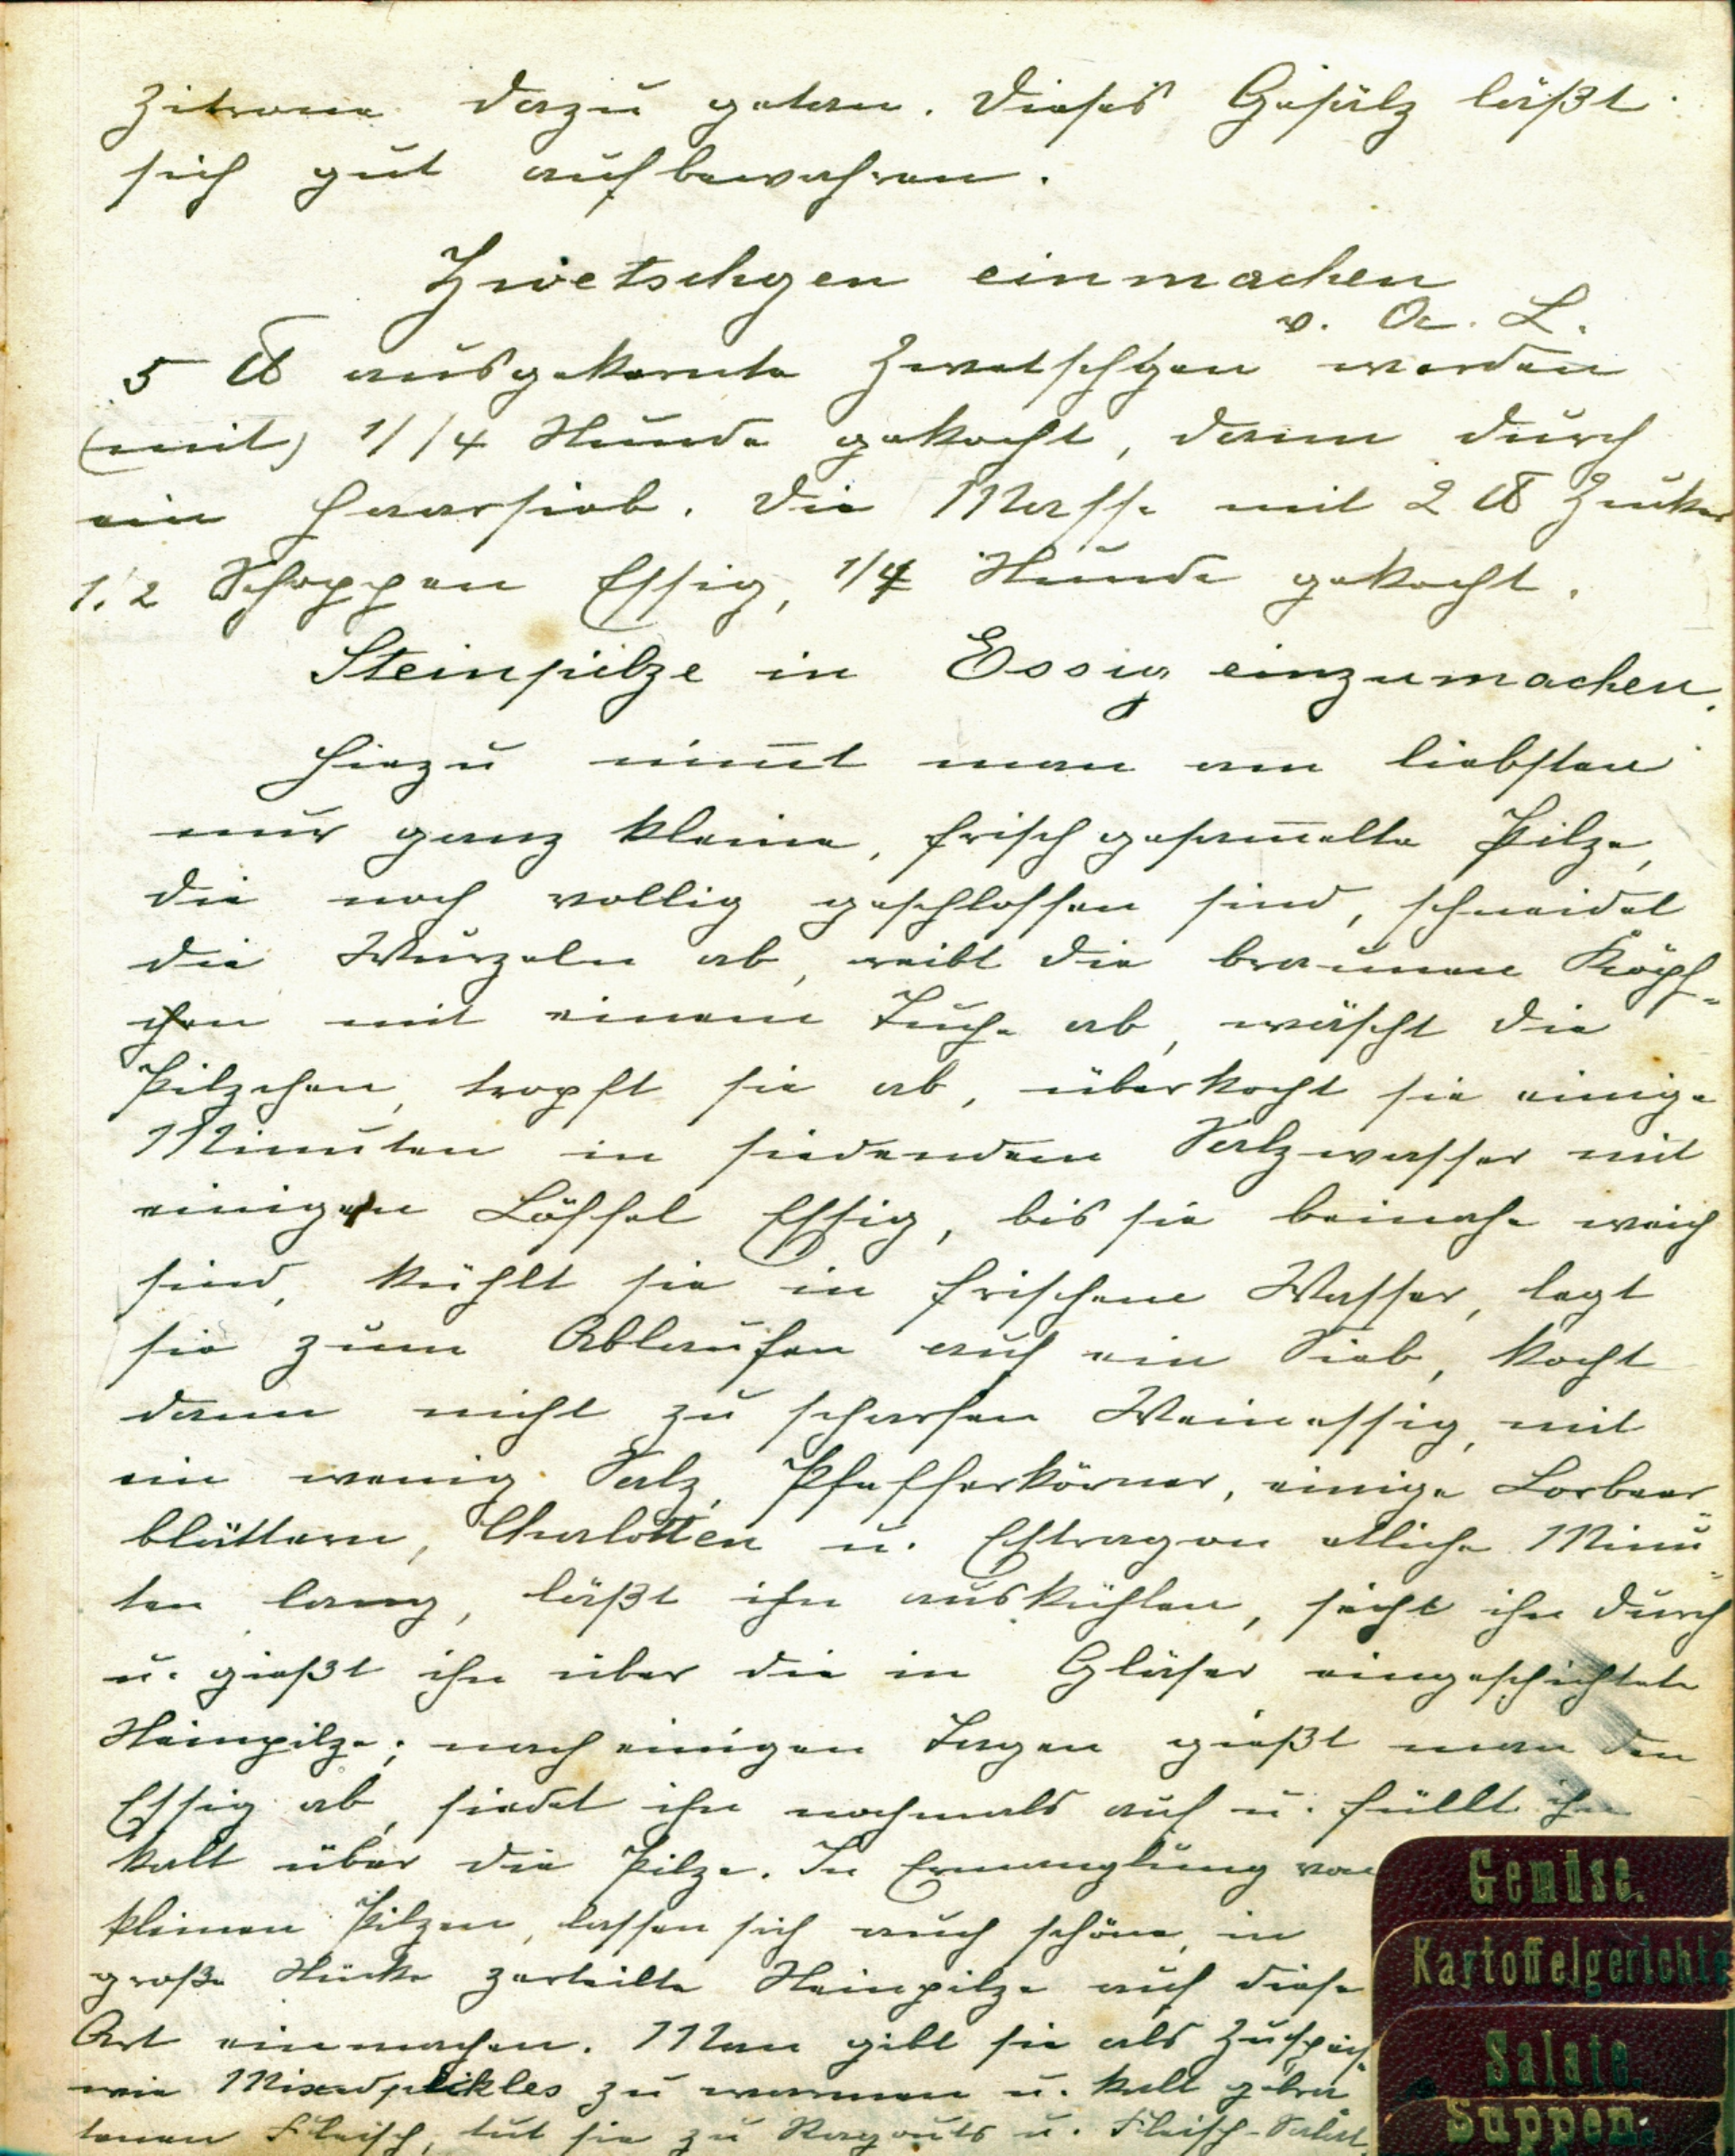 Zitrone dazu getan. Dieses Gesälz läßt
sich gut aufbewahren.
Zwetschgen einmachen
v. Oc. L.
5 ℔ ausgekernte Zwetschgen werden
(mit) 1/4 Stunde gekocht, dann durch
ein Haarsieb. Die Masse mit 2 ℔ Zucker
1/2 Schoppen Essig, 1/4 Stunde gekocht.
Steinpilze in Essig einzumachen.
Hiezu nim̄t man am liebsten
nur ganz kleine, frisch gesam̄elte Pilze,
die noch vollig geschlossen sind, schneidet
die Wurzeln ab, reibt die braunen Köpf-
chen mit einem Tuche ab, wäscht die
Pilzchen, tropft sie ab, überkocht sie einige
Minuten in siedendem Salzwasser mit
einigen Löffel Essig, bis sie beinahe weich
sind, kühlt sie in frischem Wasser, legt
sie zum Ablaufen auf ein Sieb, kocht
dann nicht zu scharfen Weinessig, mit
ein wenig Salz, Pfefferkörner, einige Lorbeer-
blättern, Charlotten u. Estragon etliche Minu-
ten lang, läßt ihn auskühlen, seiht ihn durch
u. gießt ihn über die in Gläser eingeschichtete
Steinpilze; nach einigen Tagen gießt man den
Essig ab, siedet ihn nochmals auf u. füllt ihn
kalt über die Pilze. In Ermanglung von
kleinen Pilzen, lassen sich auch schöne, in
große Stücke zerteilte Steinpilze auf diese
Art einmachen. Man gibt sie als Zuspeis
wie Mixedpikles zu warmen u. kalt gebra
tenen Fleisch, tut sie zu Ragouts u. Fleisch-Salat.
Gemüse.
Kartoffelgerichte
Salate.
Suppen.